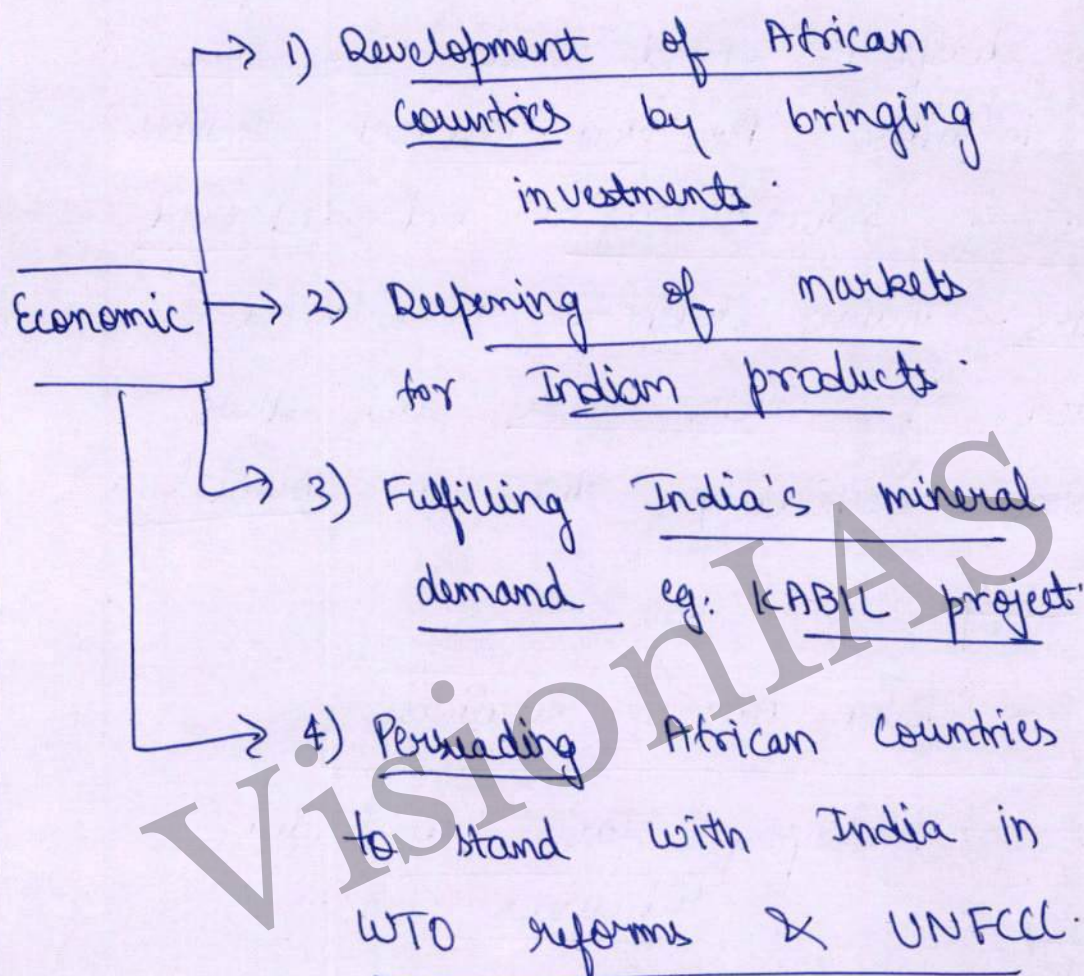 1) Development of African
countries by bringing
investments.
Economic
2) Deepening of markets
for Indian products.
3) Fulfilling India's mineral
demand eg: KABIL project.
4) Persuading African Countries
to stand with India in
WTO reforms & UNFCCC.
VisionIAS